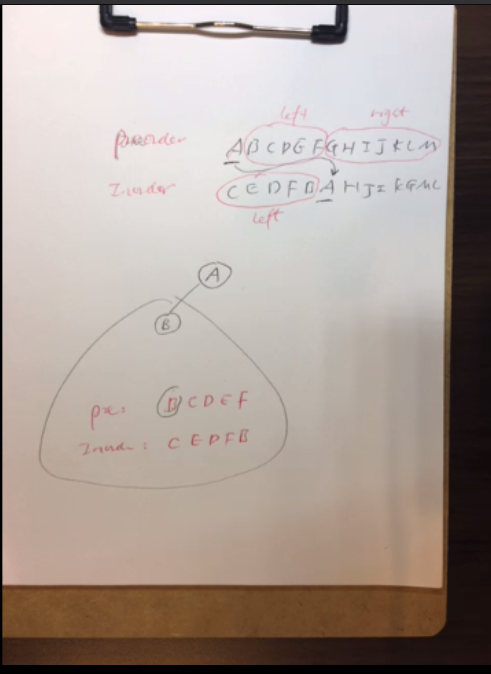 left right
Preorder A B C D E F G H I J K L M
Inorder C E D F B A H J I K G M L
left
A
B
pre: B C D E F
Inorder: C E D F B